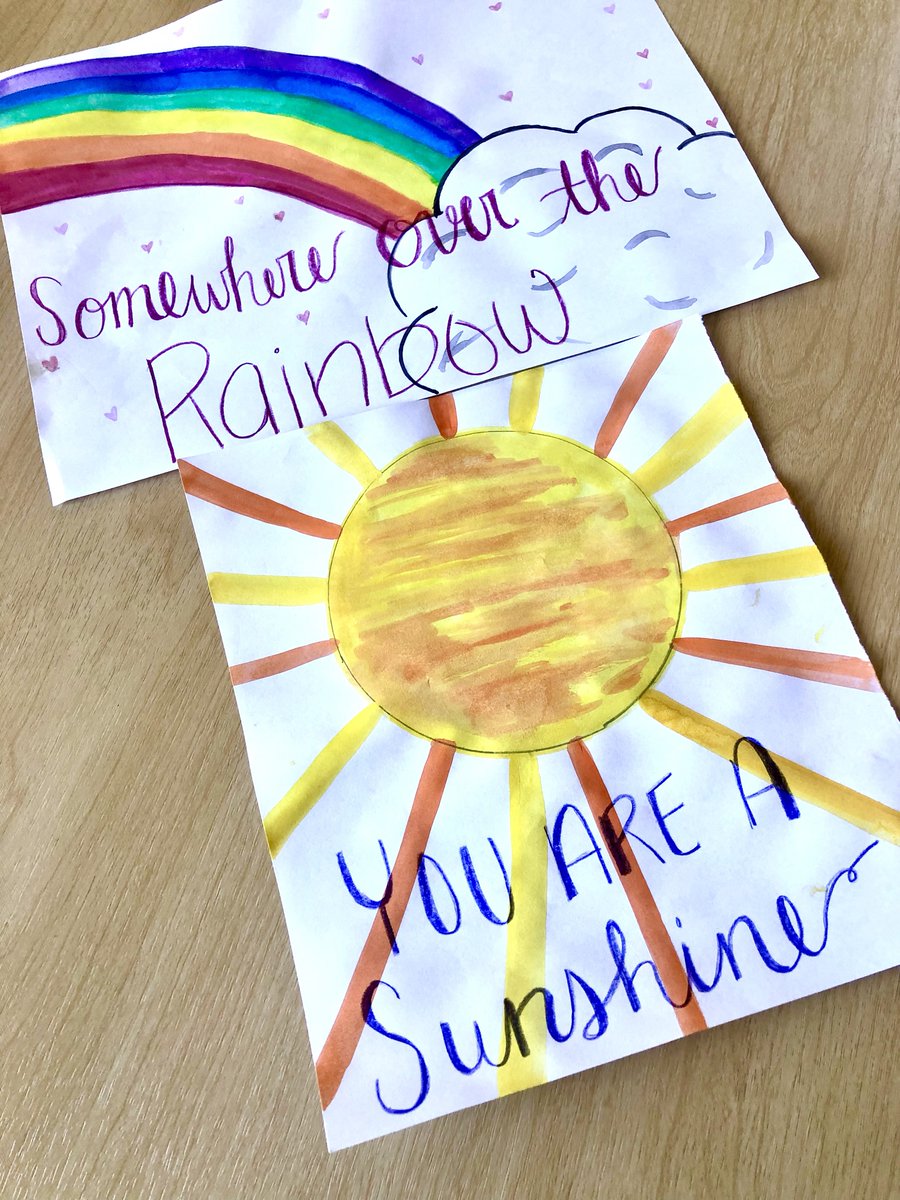 Somewhere over the
Rainbow
YOU ARE A
Sunshine